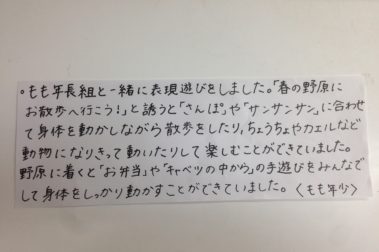 。もも年長組と一緒に表現遊びをしました。「春の野原に
お散歩へ行こう!」と誘うと「さんぽ」や「サンサンサン」に合わせ
て身体を動かしながら散歩をしたり、ちょうちょやカエルなど
動物になりきって動いたりして楽しむことができていました。
野原に着くと「お弁当」や「キャベツの中から」の手遊びをみんなで
して身体をしっかり動かすことができていました。〈もも年少〉